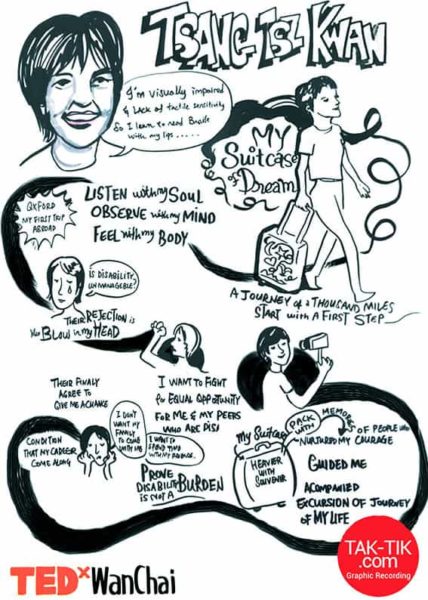 TSANG TSZ KWAN
I'm visually impaired
& Lack of tactile sensitivity
So I learn to read Braille
with my lips .....
MY
Suitcase
of
Dream
OXFORD
MY FIRST TRIP
ABROAD
LISTEN with my SOUL
OBSERVE with my MIND
FEEL with my BODY
IS DISABILITY
UNMANAGEABLE?
A JOURNEY of a THOUSAND MILES
START with A FIRST STEP
THEIR REJECTION is
BLOW in my HEAD
THEIR FINALY
AGREE TO
GIVE ME A CHANCE
I WANT TO FIGHT
for EQUAL OPPORTUNITY
FOR ME & MY PEERS
WHO ARE DISI
CONDITION
THAT MY CAREER
COME ALONG
I DON'T
WANT MY
FAMILY
TO COME
WITH ME
I WANT TO
WITH MY
PROVE
DISABILITY
IS NOT A BURDEN
My Suitcase
PACK
WITH
MEMORIES
OF PEOPLE who
NURTURED MY COURAGE
HEAVIER
WITH
SOUVENIR
GUIDED ME
ACOMPANIED
EXCURSION OF JOURNEY
of MY LIFE
TEDxWanChai
TAK-TIK
.com
Graphic Recording